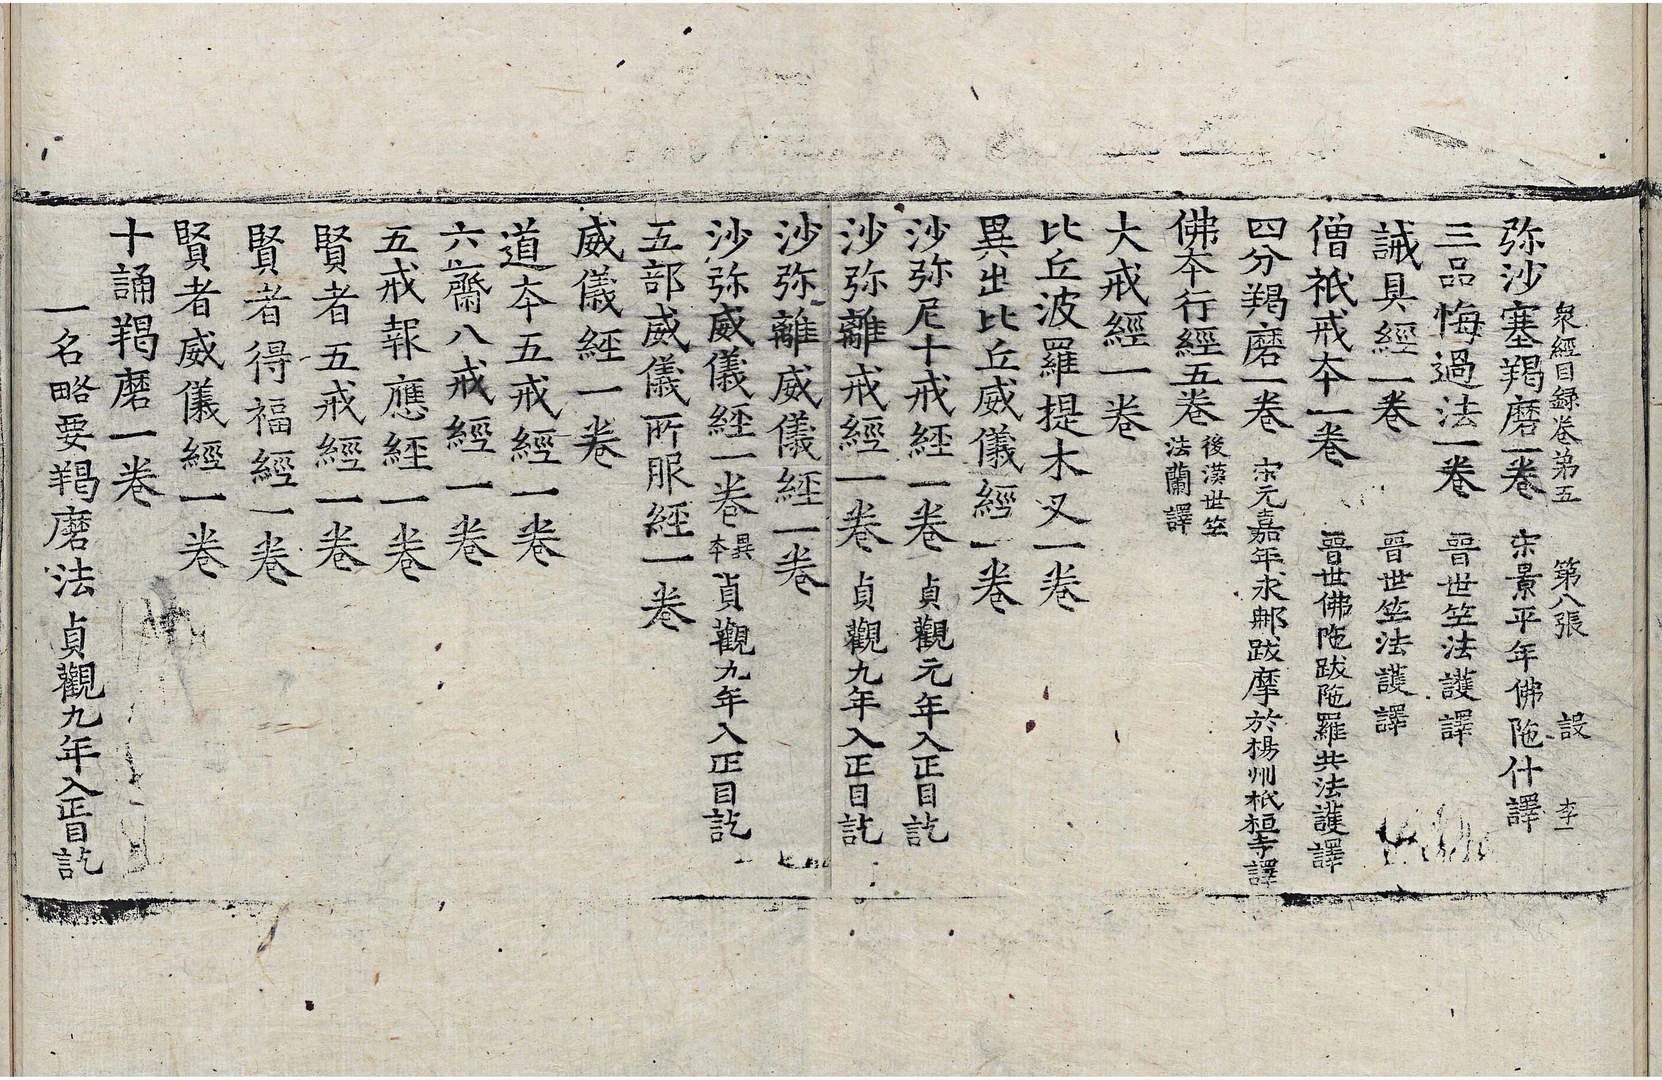 衆經目録卷第五 第八張 設 李一
弥沙塞羯磨一卷 宋景平年佛陁什譯
三品悔過法一卷 晉世竺法護譯
誡具經一卷 晉世竺法護譯
僧祇戒夲一卷 晉世佛陁跋陁羅共法護譯
四分羯磨一卷 宋元嘉年求那跋摩於楊州祇桓寺譯
佛夲行經五卷 後漢世竺
法蘭譯
大戒經一卷
比丘波羅提木叉一卷
異出比丘威儀經一卷
沙弥尼十戒經一卷 貞觀元年入正目訖
沙弥離戒經一卷 貞觀九年入正目訖
沙弥離威儀經一卷
沙弥威儀經一卷 異
夲 貞觀九年入正目訖
五部威儀所服經一卷
威儀經一卷
道夲五戒經一卷
六齋八戒經一卷
五戒報應經一卷
賢者五戒經一卷
賢者得福經一卷
賢者威儀經一卷
十誦羯磨一卷
一名略要羯磨法 貞觀九年入正目訖